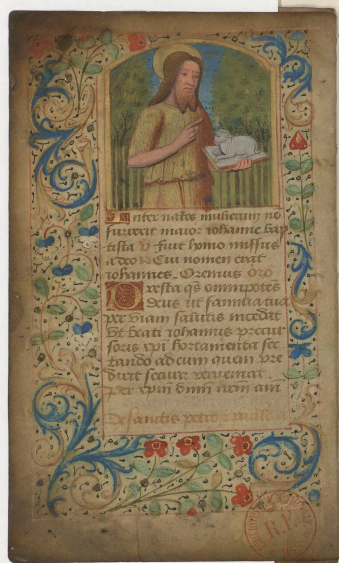 Inter natos mulierum no
surrexit maior iohanne bap
tista v fuit homo missus
a deo R Cui nomen erat
iohannes. Oremus Oro
Presta qs omnipotes
deus ut familia tua
per viam salutis incedat
et beati iohannis precur
soris xpi hortamenta sec
tando ad eum quem pre
dixit secura perveniat.
per xpm dnm nrm am
de sanctis petro z paulo a